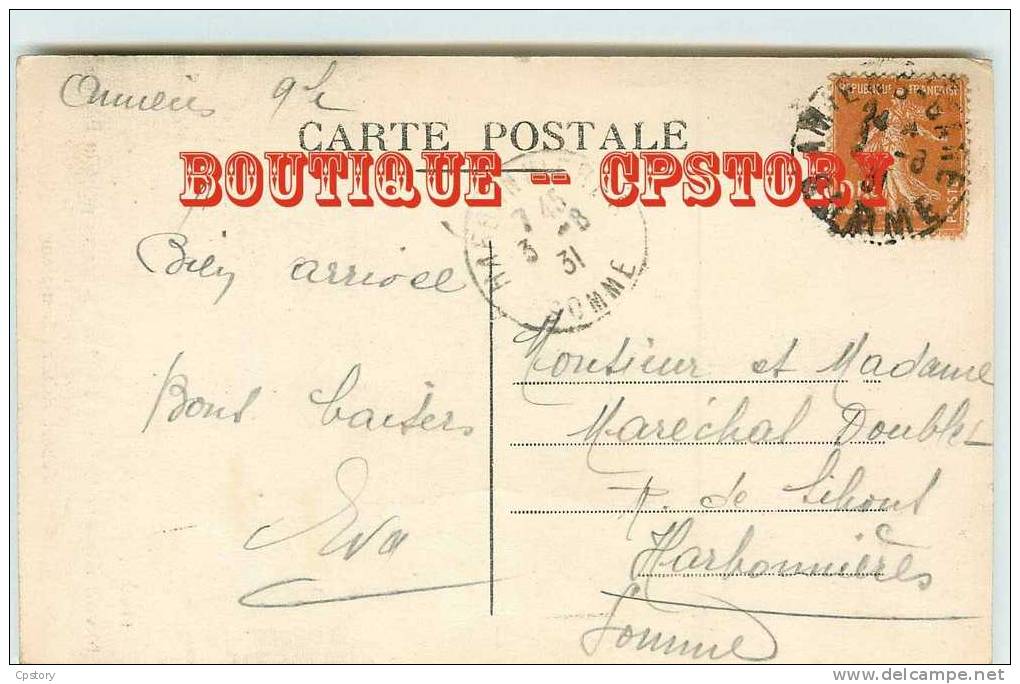 Amiens 9h
RÉPUBLIQUE FRANÇAISE
CARTE POSTALE
BOUTIQUE -- CPSTORY
7 45
3 -8
31
SOMME
Bien arrivée
Bons baisers
Eva
Monsieur et Madame
Maréchal Doublet
R. de Lihons
Harbonnières
Somme
Cpstory
www.delcampe.net